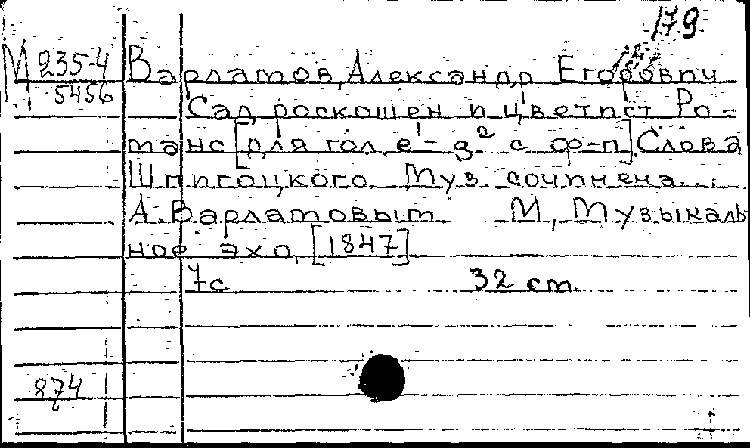 179
М 235-4
5456
Варламов, Александр Егорович
Сад роскошен и цветист Ро-
манс [для гол. e¹- g² с ф-п]. Слова
Шпигоцкого. Муз. сочинена...
А. Варламовым М., Музыкаль
ное эхо, [1847]
7с 32 cm.
874